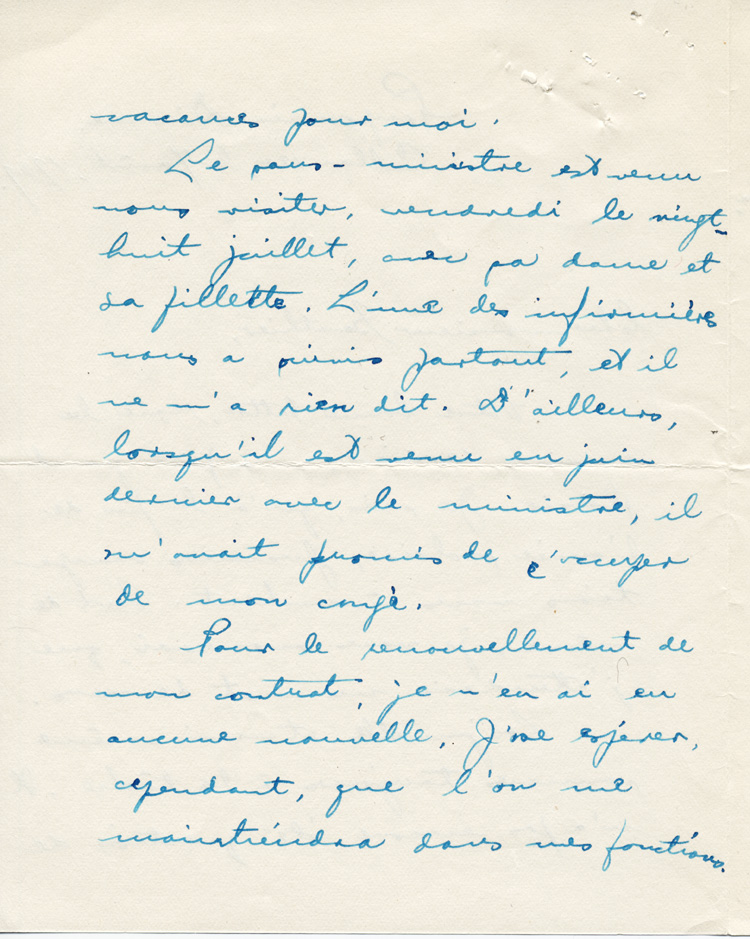 vacances pour moi.
Le sous-ministre est venu
nous visiter, vendredi le vingt-
huit juillet, avec sa dame et
sa fillette. L'une des infirmières
nous a suivis partout, et il
ne m'a rien dit. D'ailleurs,
lorsqu'il est venu en juin
dernier avec le ministre, il
m'avait promis de s'occuper
de mon congé.
Pour le renouvellement de
mon contrat, je n'en ai eu
aucune nouvelle. J'ose espérer,
cependant, que l'on me
maintiendra dans mes fonctions.